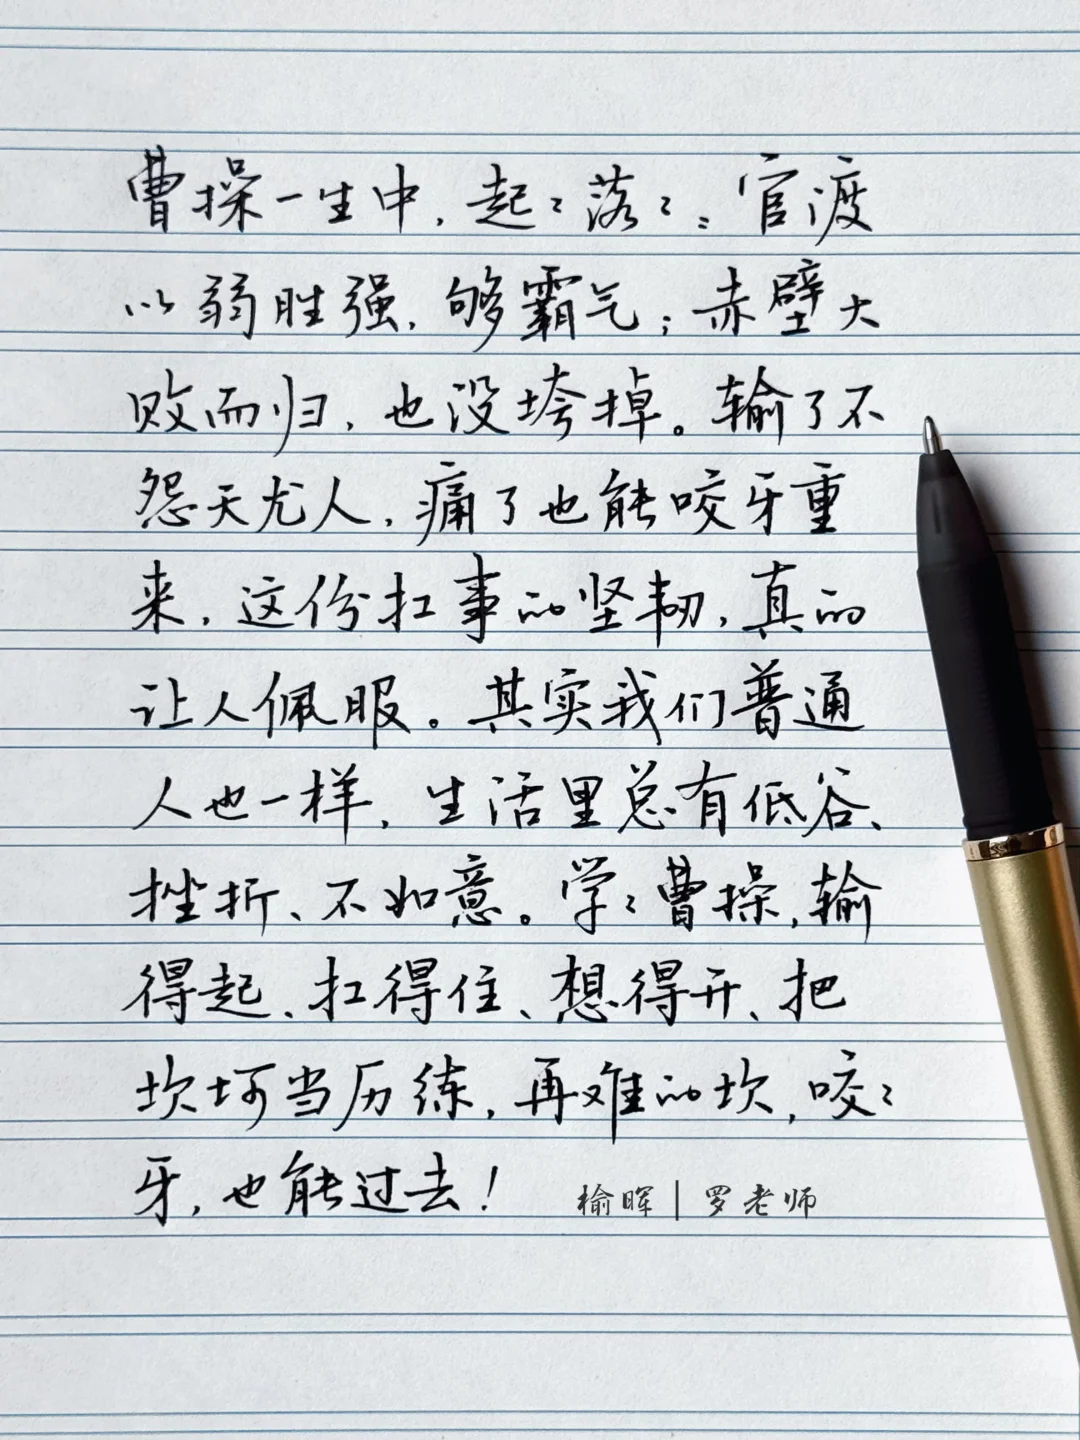 曹操一生中,起々落々:官渡
以弱胜强,够霸气;赤壁大
败而归,也没垮掉。输了不
怨天尤人,痛了也能咬牙重
来,这份扛事的坚韧,真的
让人佩服。其实我们普通
人也一样,生活里总有低谷、
挫折、不如意。学々曹操,输
得起、扛得住、想得开、把
坎坷当历练,再难的坎,咬々
牙,也能过去!
榆晖|罗老师